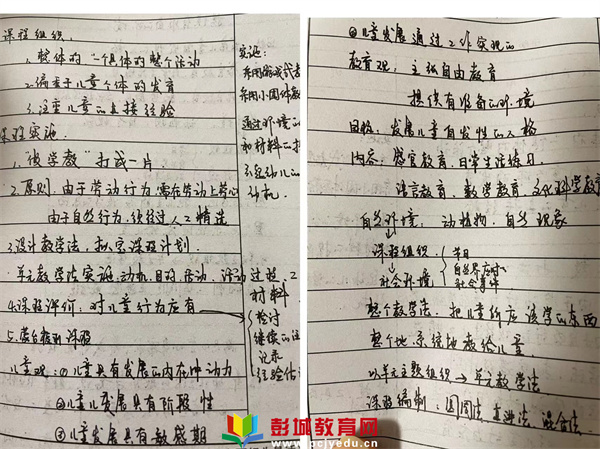 课程组织:
1. 整体的、一个具体的整个活动
2. 偏重于儿童个体的发育
3. 注重儿童的直接经验
课程实施
1. "做学教"打成一片
2. 原则: 由于劳动行为,需在劳动上劳心
由于自然行为,须经过人工精选
3. 设计教学法,拟定课程计划
单元教学法实施: 动机、目的、活动、活动过程、
材料
4. 课程评价: 对儿童行为应有
检讨
继续的注
记录
经验估
5.
儿童观: ① 儿童具有发展的内在冲动力
② 儿童发展具有阶段性
③ 儿童发展具有敏感期
实施:
采用游戏式
采用小团体教
通过环境
和材料的
引起幼儿的
动机
④ 儿童发展通过工作实现的
教育观: 主张自由教育
提供有准备的环境
目标: 发展儿童自发性的人格
内容: 感官教育、日常生活练习、
语言教育、数学教育、文化科学教育
自然环境: 动植物、自然现象
课程组织
节日
自然界应时
社会环境
社会事件
整个教学法: 把儿童所应该学的东西
整个地、系统地教给儿童
以单元主题组织→单元教学法
课程编制: 圆周法、直进法、混合法
彭城教育网
www.pcjyedu.cn